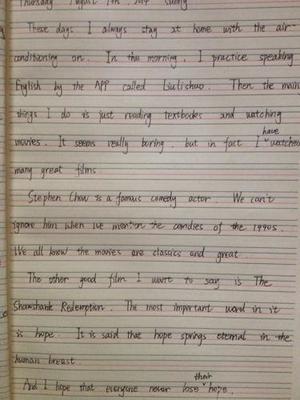 Thursday August 7th, 2014 sunny
These days I always stay at home with the air-
conditioning on. In this morning, I practice speaking
English by the APP called Liulishuo. Then the main
things I do is just reading textbooks and watching
movies. It seems really boring, but in fact I have watched
many great films.
Stephen Chow is a famous comedy actor. We can't
ignore him when we mention the comdies of the 1990s.
We all know the movies are classics and great.
The other good film I want to say is The
Shawshank Redemption. The most important word in it
is hope. It is said that hope springs eternal in the
human breast.
And I hope that everyone never lose their hope.